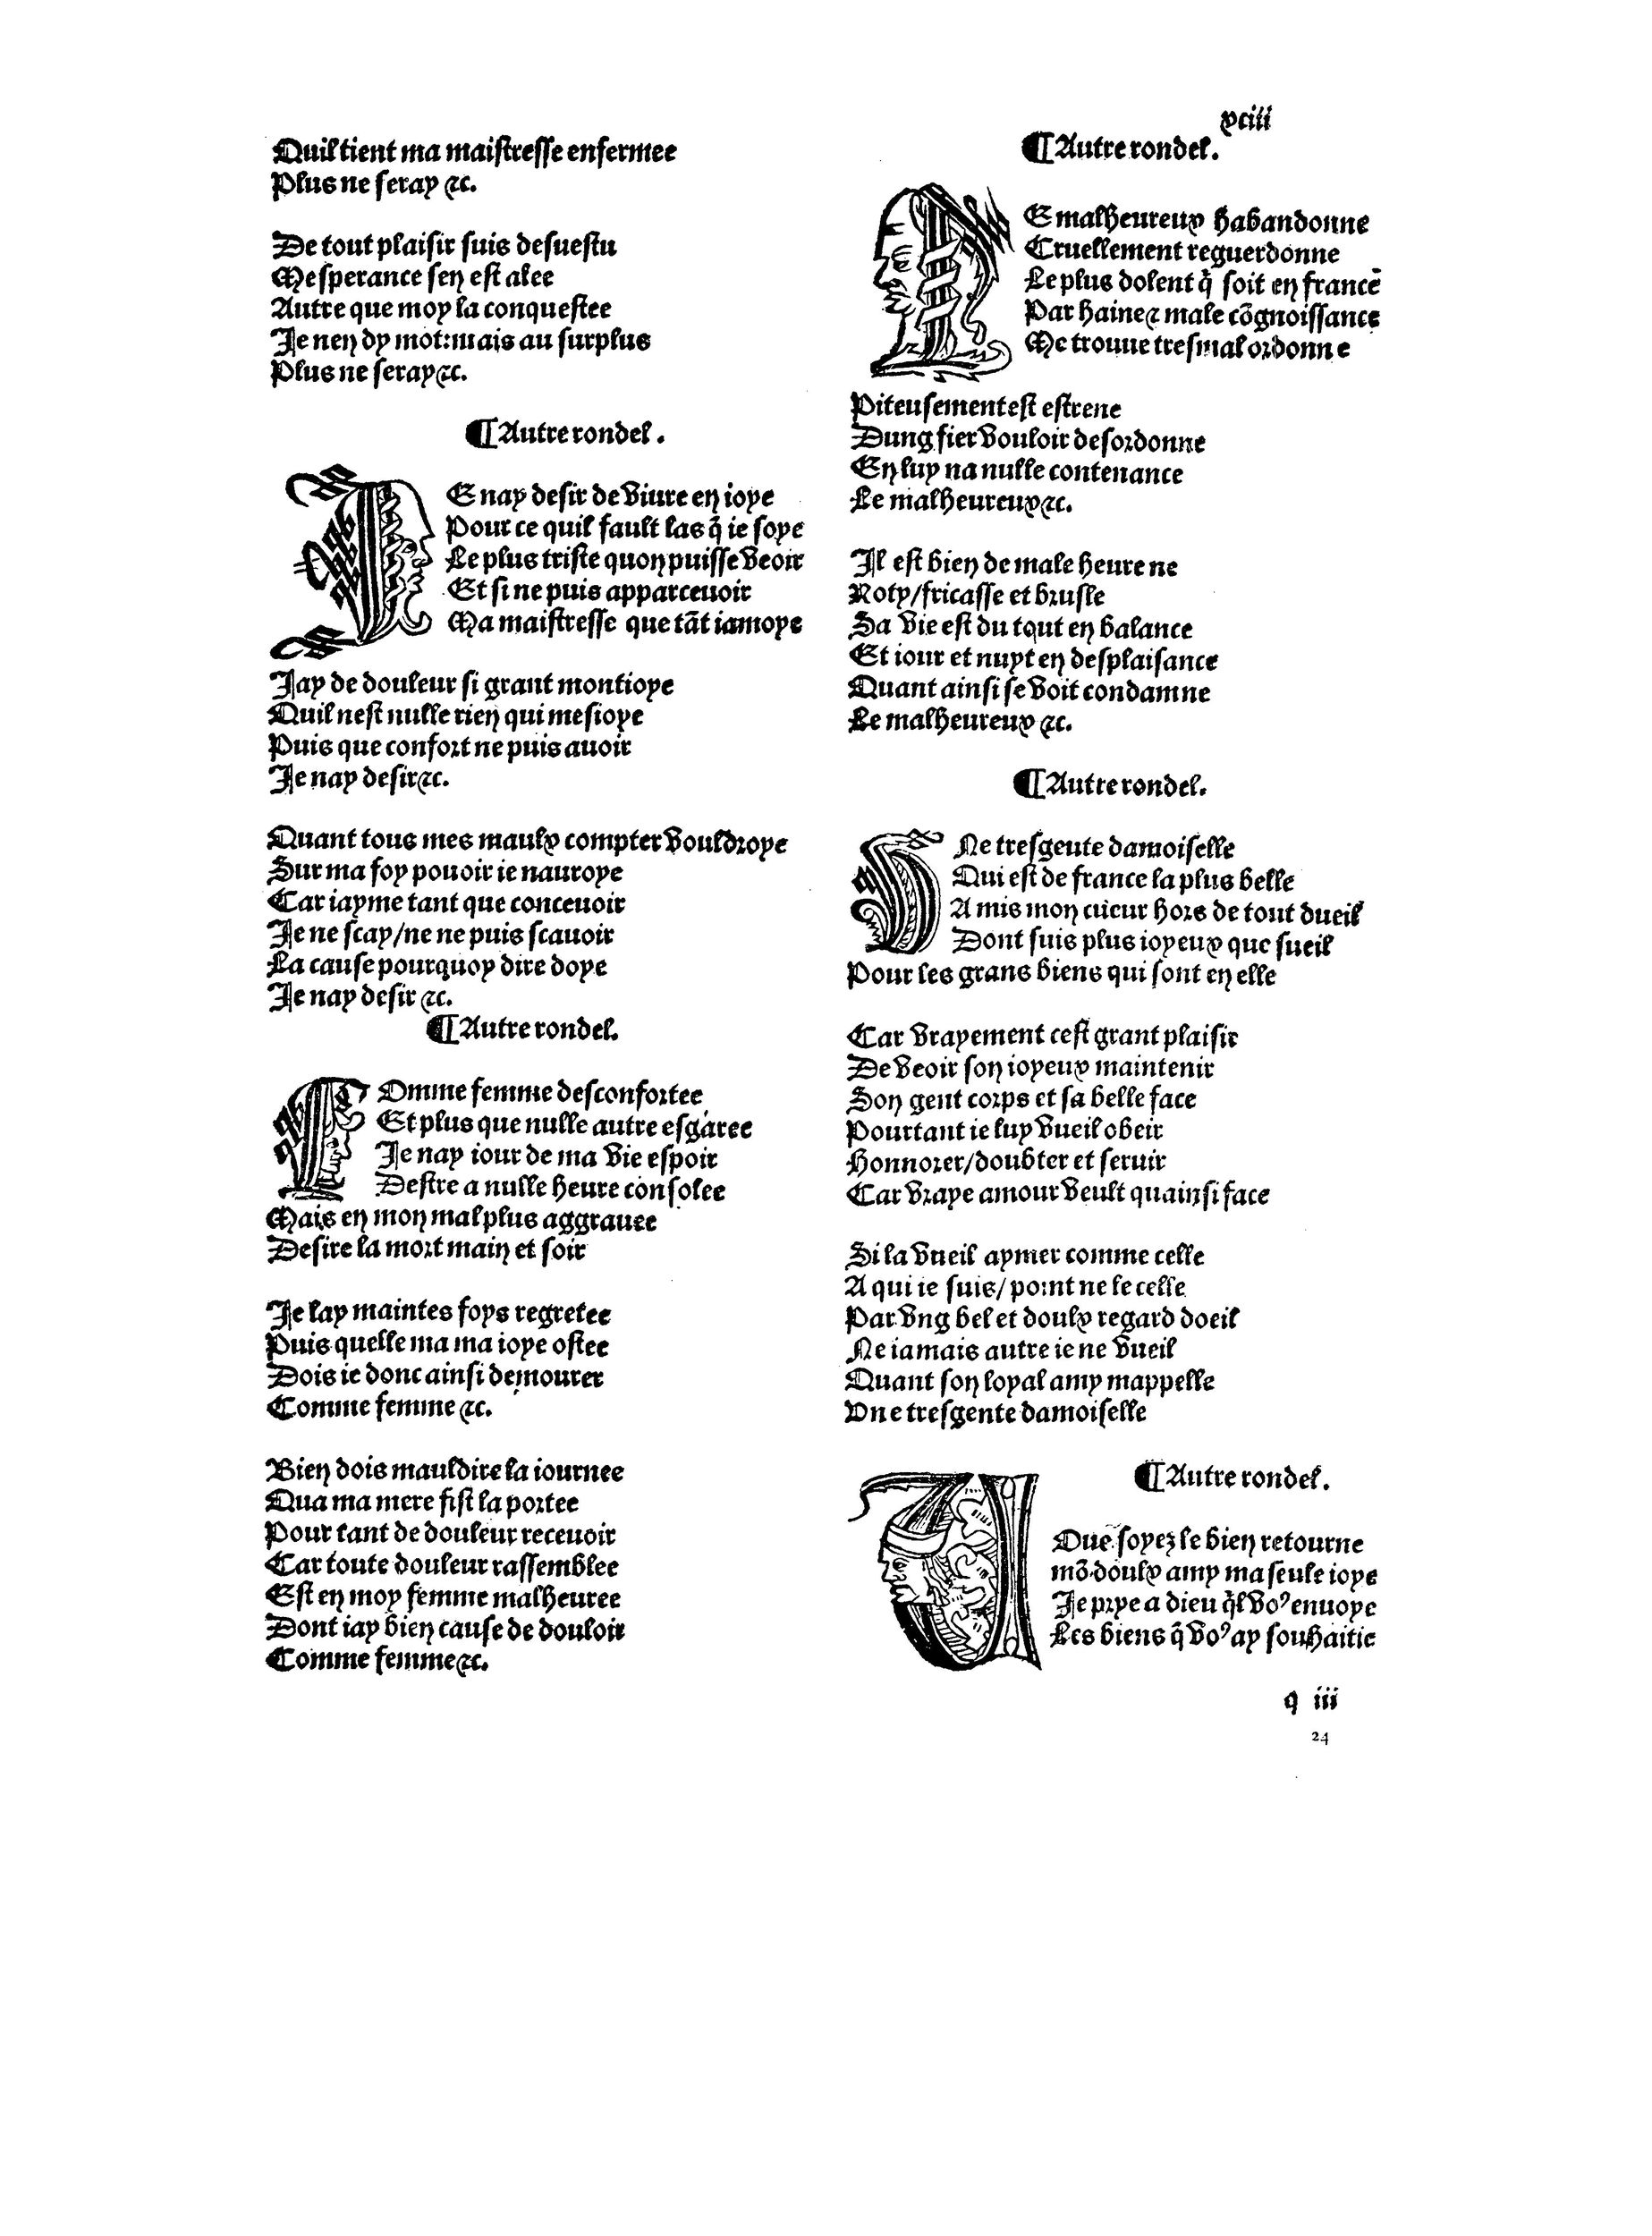 xciii
Quil tient ma maistresse enfermee
Plus ne seray ⁊c.
De tout plaisir suis desuestu
Mesperance sen est alee
Autre que moy la conquestee
Je nen dy mot:mais au surplus
Plus ne seray ⁊c.
¶ Autre rondel.
JE nay desir de viure en ioye
Pour ce quil fault las q̃ ie soye
Le plus triste quon puisse veoir
Et si ne puis apparceuoir
Ma maistresse que tãt iamoye
Jay de douleur si grant montioye
Quil nest nulle rien qui mesioye
Puis que confort ne puis auoir
Je nay desir ⁊c.
Quant tous mes maulx compter vouldroye
Sur ma foy pouoir ie nauroye
Car iayme tant que conceuoir
Je ne scay/ne ne puis scauoir
La cause pourquoy dire doye
Je nay desir ⁊c.
¶ Autre rondel.
COmme femme desconfortee
Et plus que nulle autre esgaree
Je nay iour de ma vie espoir
Destre a nulle heure consolee
Mais en mon mal plus aggrauee
Desire la mort main et soir
Je lay maintes foys regretee
Puis quelle ma ma ioye ostee
Dois ie donc ainsi demourer
Comme femme ⁊c.
Bien dois mauldire la iournee
Qua ma mere fist la portee
Pour tant de douleur receuoir
Car toute douleur rassemblee
Est en moy femme malheuree
Dont iay bien cause de douloir
Comme femme ⁊c.
¶ Autre rondel.
LE malheureux habandonne
Cruellement reguerdonne
Le plus dolent q̃ soit en france
Par haine ⁊ male cõgnoissance
Me trouue tresmal ordonne
Piteusement est estrene
Dung fier vouloir desordonne
En luy na nulle contenance
Le malheureux ⁊c.
Il est bien de male heure ne
Roty/fricasse et brusle
Sa vie est du tout en balance
Et iour et nuyt en desplaisance
Quant ainsi se voit condamne
Le malheureux ⁊c.
¶ Autre rondel.
UNe tresgente damoiselle
Qui est de france la plus belle
A mis mon cueur hors de tout dueil
Dont suis plus ioyeux que sueil
Pour les grans biens qui sont en elle
Car vrayement cest grant plaisir
De veoir son ioyeux maintenir
Son gent corps et sa belle face
Pourtant ie luy vueil obeir
Honnorer/doubter et seruir
Car vraye amour veult quainsi face
Si la vueil aymer comme celle
A qui ie suis/point ne le celle
Par vng bel et doulx regard doeil
Ne iamais autre ie ne vueil
Quant son loyal amy mappelle
Vne tresgente damoiselle
¶ Autre rondel.
VOus soyez le bien retourne
mõ doulx amy ma seule ioye
Je prye a dieu q̃l voꝰ enuoye
Les biens q̃ voꝰ ay souhaitie
q iii
24